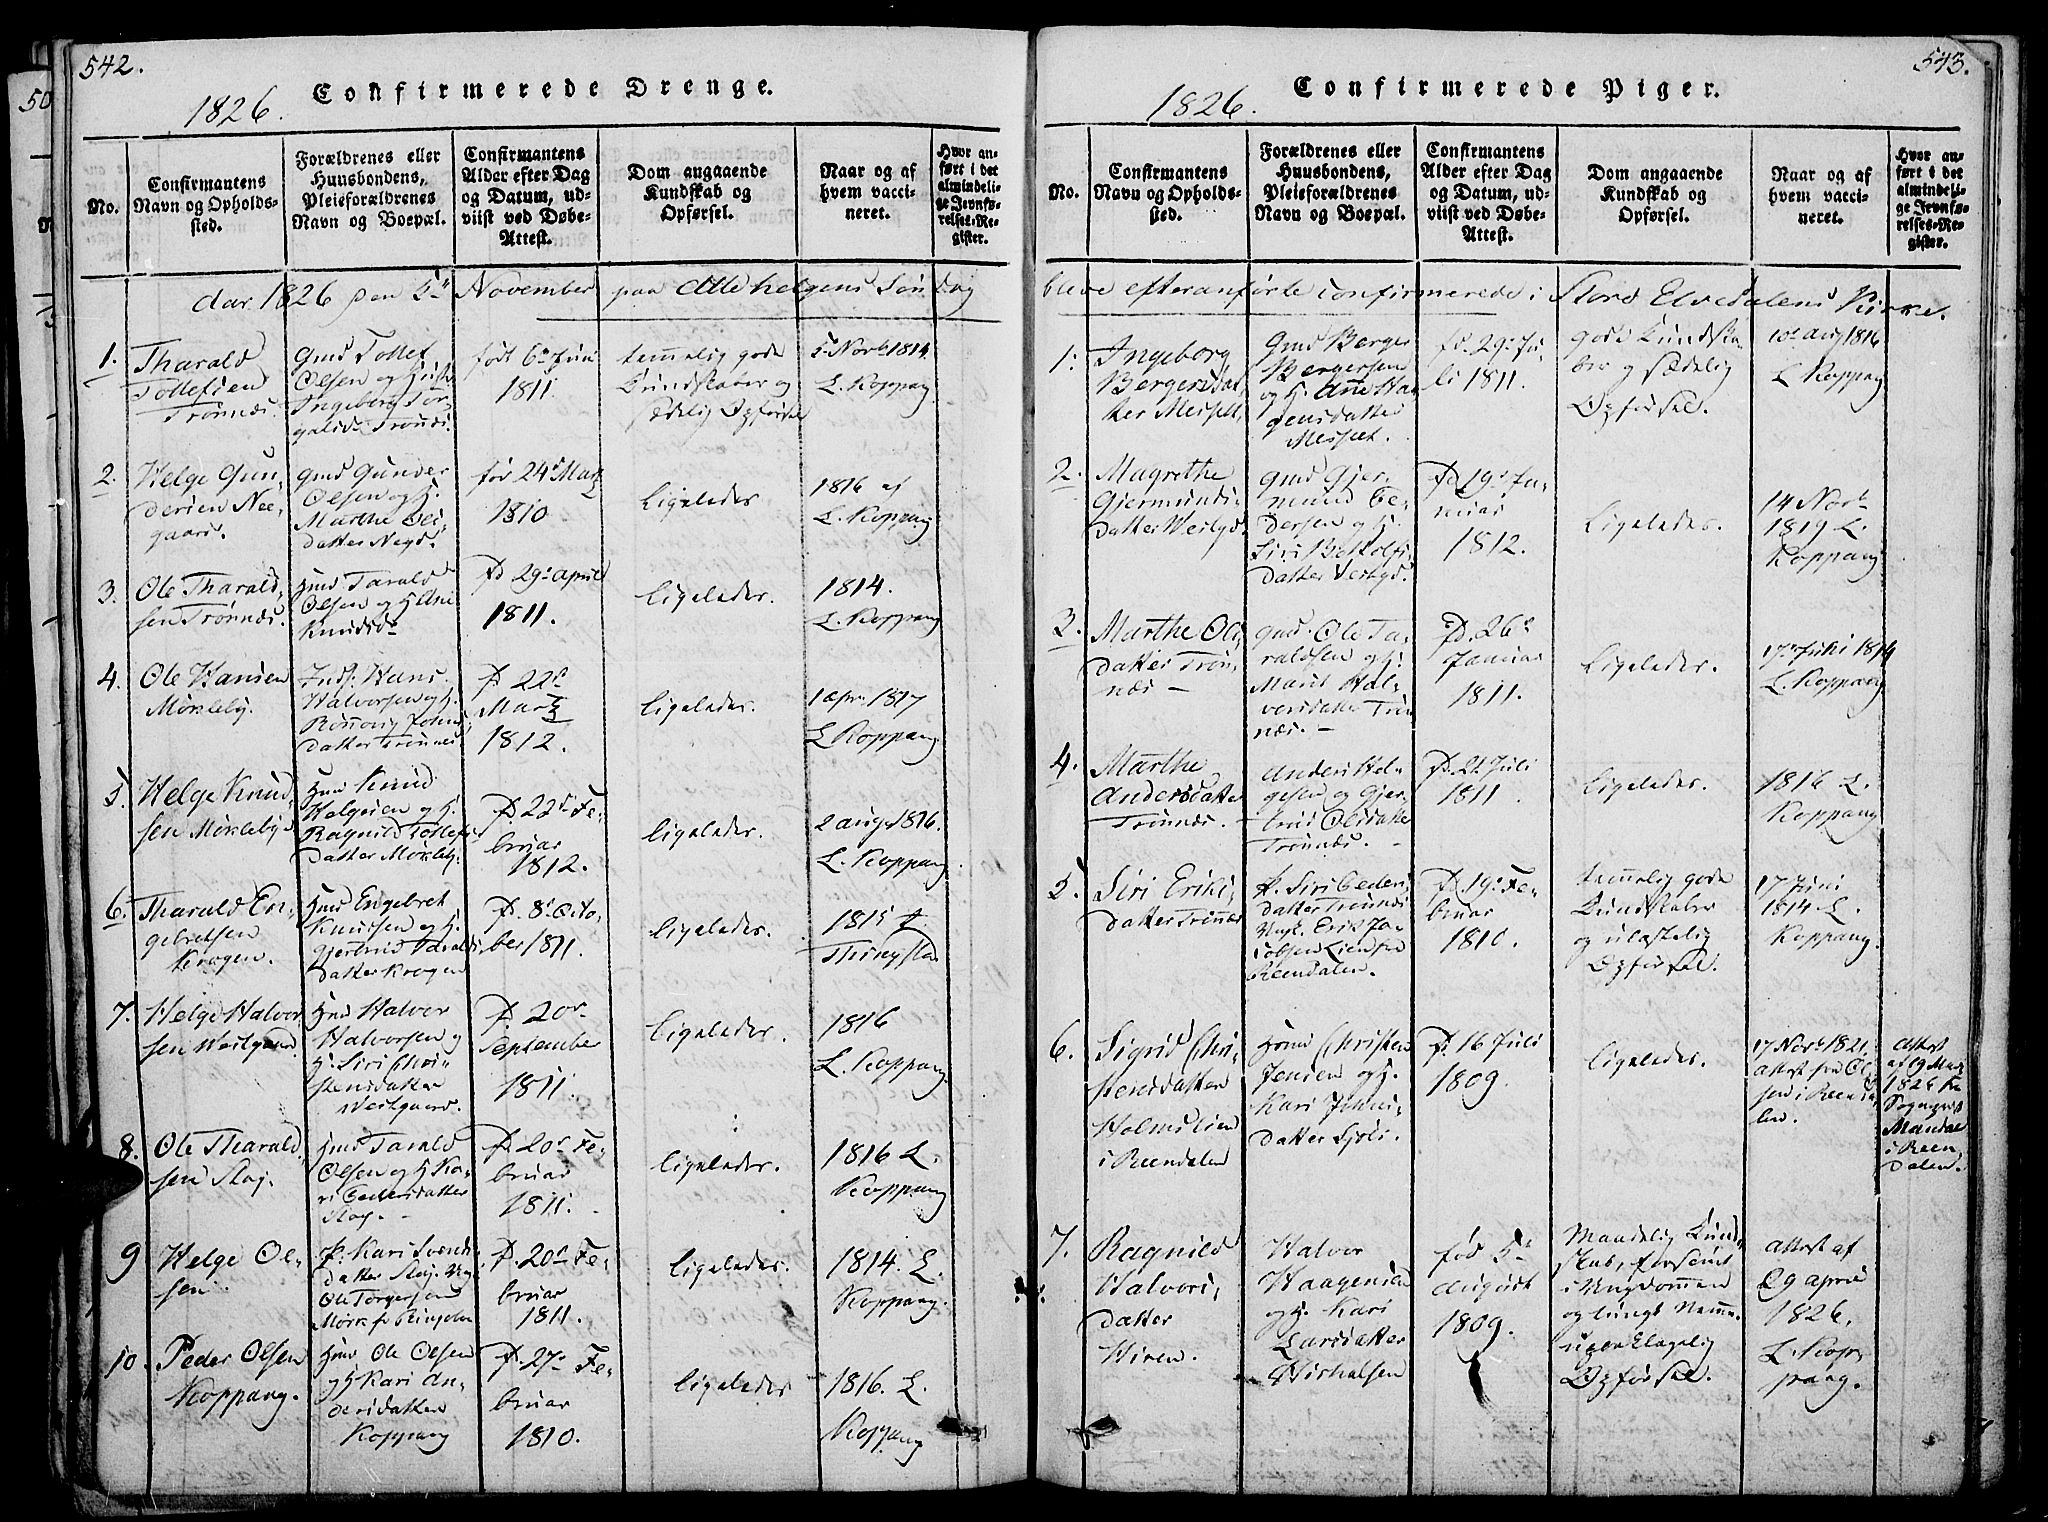 542.
Confirmerede Drenge.
1826.
No.
Confirmantens
Navn og Opholds-
sted.
Forældrenes eller
Huusbondens,
Pleieforældrenes
Navn og Boepæl.
Confirmantens
Alder efter Dag
og Datum, ud-
viist ved Døbe-
Attest.
Dom angaaende
Kundskab og
Opførsel.
Naar og af
hvem vacci-
neret.
Hvor an-
ført i det
almindeli-
ge Jevnfø-
relses-Re-
gister.
Aar 1826 den 5te November paa Alle helgens Søndag
1.
Tharald
Tollefsen
Trønnes.
Gmd Tollef
Olsen og
Ingeborg
Trønes.
født 6te Juni
1811.
temmelig gode
Kundskaber og
sædelig Opførsel
5 Novb 1814
L. Koppang
2.
Helge Gun-
dersen Nee-
gaard.
Gmd Gunder
Olsen og H.
Marthe
datter
24de Martz
1810
Ligeledes
1816 af
L. Koppang
3.
Ole Tharald-
sen Trønnes.
Hmd Tarald
Olsen og H.
Knudsd
Fd 29de April
1811.
ligeledes.
1814.
L. Koppang
4.
Ole Hansen
Møkleby.
Hans
Halvorsen og H.
datter Trønnes
F. 22de
Martz
1812.
ligeledes.
1 Apr. 1817
L Koppang
5.
Helge Knud-
sen Møkleby
Hmd Knud
Helgesen og H.
Ragnild Tollefs
datter Møkleby.
F. 22de Fe-
bruar
1812.
ligeledes.
2 Aug. 1816.
L. Koppang
6.
Tharald En-
gebretsen
Krogen.
Hmd Engebret
Knudsen og H.
Gjertrud Taralds
datter Krogen
F. 8de Octo-
ber 1811.
ligeledes.
1815
7.
Helge Halvor
sen Westgaard
Hmd Halvor
Halvorsen og
H. Siri Chri-
stensdatter
Westgaard.
F. 20de
September
1811.
ligeledes.
1816
L. Koppang.
8.
Ole Tharald-
sen Stai.
Hmd Tarald
Olsen og H Ka-
ri Pedersdatter
Stai.
F. 20de Fe-
bruar
1811.
ligeledes.
1816 L.
Koppang
9
Helge Ol-
sen.
Kari
datter Stai.
Ole Torgersen
F. 20de Fe-
bruar
1811.
ligeledes.
1814. L.
Koppang.
10.
Peder Olsen
Koppang.
Hmd Ole Olsen
og H Kari An-
dersdatter
Koppang
F. 27de Fe-
bruar
1810.
ligeledes
1816. L.
Koppang
543.
Confirmerede Piger.
1826.
No.
Confirmantens
Navn og Opholds-
sted.
Forældrenes eller
Huusbondens,
Pleieforældrenes
Navn og Boepæl.
Confirmantens
Alder efter Dag
og Datum, ud-
viist ved Døbe-
Attest.
Dom angaaende
Kundskab og
Opførsel.
Naar og af
hvem vacci-
neret.
Hvor an-
ført i det
almindeli-
ge Jevnfø-
relses-Re-
gister.
bleve efteranførte confirmerede i Stord Elvedalens Kirke.
1.
Ingeborg
Bergersdat-
ter Messelt.
Gmd Berger
Bergersen
og H. Anne Haa-
gensdatter
Messelt.
fd. 29de Ju-
li 1811.
gode Kundska-
ber og sædelig
Opførsel.
10de Aug 1816
L Koppang
2.
Magrethe
Gjermunds-
datter Vestgd.
Gmd Gjer-
mund Pe-
dersen og H.
Siri
datter Vestgd.
Fd 19de Ja-
nuar
1812.
Ligeledes.
14 Novb
1819 L.
Koppang
3.
Marthe Ols-
datter Trøn-
næs
Gmd. Ole Ta-
raldsen og H.
Marit Hal-
vorsdatter Trøn
næs.
Fd. 26de
Januar
1811.
Ligeledes.
1814
L. Koppang
4.
Marthe
Andersdatter
Trønnes.
Anders Hel-
gesen og Gjer-
trud Olsdatter
Trønnes.
F. 21 Juli
1811.
ligeledes.
1816 L.
Koppang
5.
Siri Eriks-
datter Trønnæs
Siri Peders
datter Trønnes
Erik Ja-
cobsen
Reendalen.
F. 19de Fe-
bruar
1810.
temmelig gode
Kundskaber
og ulastelig
Opførsel.
17 Juni
1814 L.
Koppang.
6.
Sigrid Chri-
stensdatter
Holmslien
i Reendalen
Hmd Christen
Jensen og H.
Kari Johns-
datter
F. 16 Juli
1809.
ligeledes.
17 Novb 1821.
Attest fra
i Reenda-
len.
Attest
af 19 Mai
1826 fra
Sogneprest
i Reen
dalen.
7.
Ragnild
Halvors-
datter
Hiren.
Halvor
Haagensen
og H. Kari
Larsdatter
fød 5te
August
1809.
Maadelig Kund-
skab, forsømt
i Ungdommen
og tungt Nemme.
Opførsel.
Attest af
29 April
1826.
L. Kop-
pang.